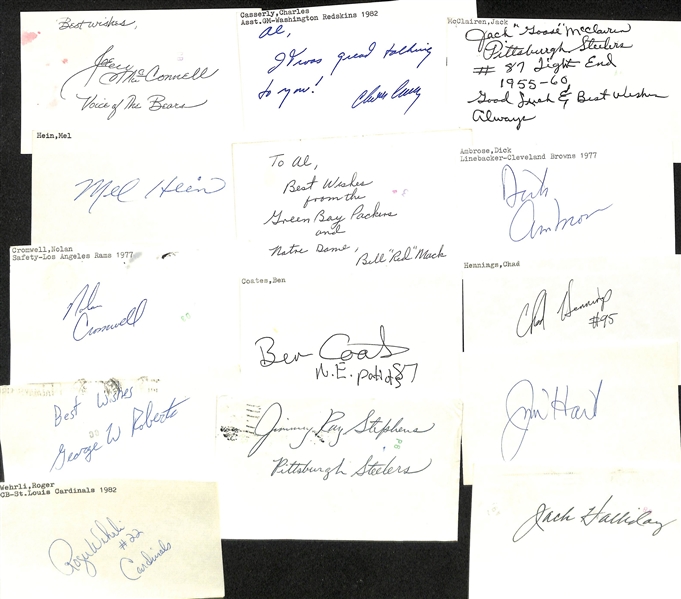 Best wishes,
Jeery McConnell
Voice of The Bears
Casserly,Charles
Asst.GM-Washington Redskins 1982
Al,
It was great talking
to you!
McClairen,Jack
Jack "Goose" McClairen
Pittsburgh Steelers
# 87 Tight End
1955-60
Good Luck & Best Wishes
Always
Hein,Mel
Mel Hein
To Al,
Best Wishes
from the
Green Bay Packers
and
Notre Dame,
Bill "Red" Mack
Ambrose,Dick
Linebacker-Cleveland Browns 1977
Dick
Ambrose
Cromwell,Nolan
Safety-Los Angeles Rams 1977
Nolan
Cromwell
Coates,Ben
Ben Coates
N.E. patriots 87
Hennings,Chad
Chad Hennings
#95
Best Wishes
George W Roberts
Jimmy Ray Stephens
Pittsburgh Steelers
Jim Hart
Wehrli,Roger
CB-St.Louis Cardinals 1982
Roger Wehrli
#22
Cardinals
Jack Halliday